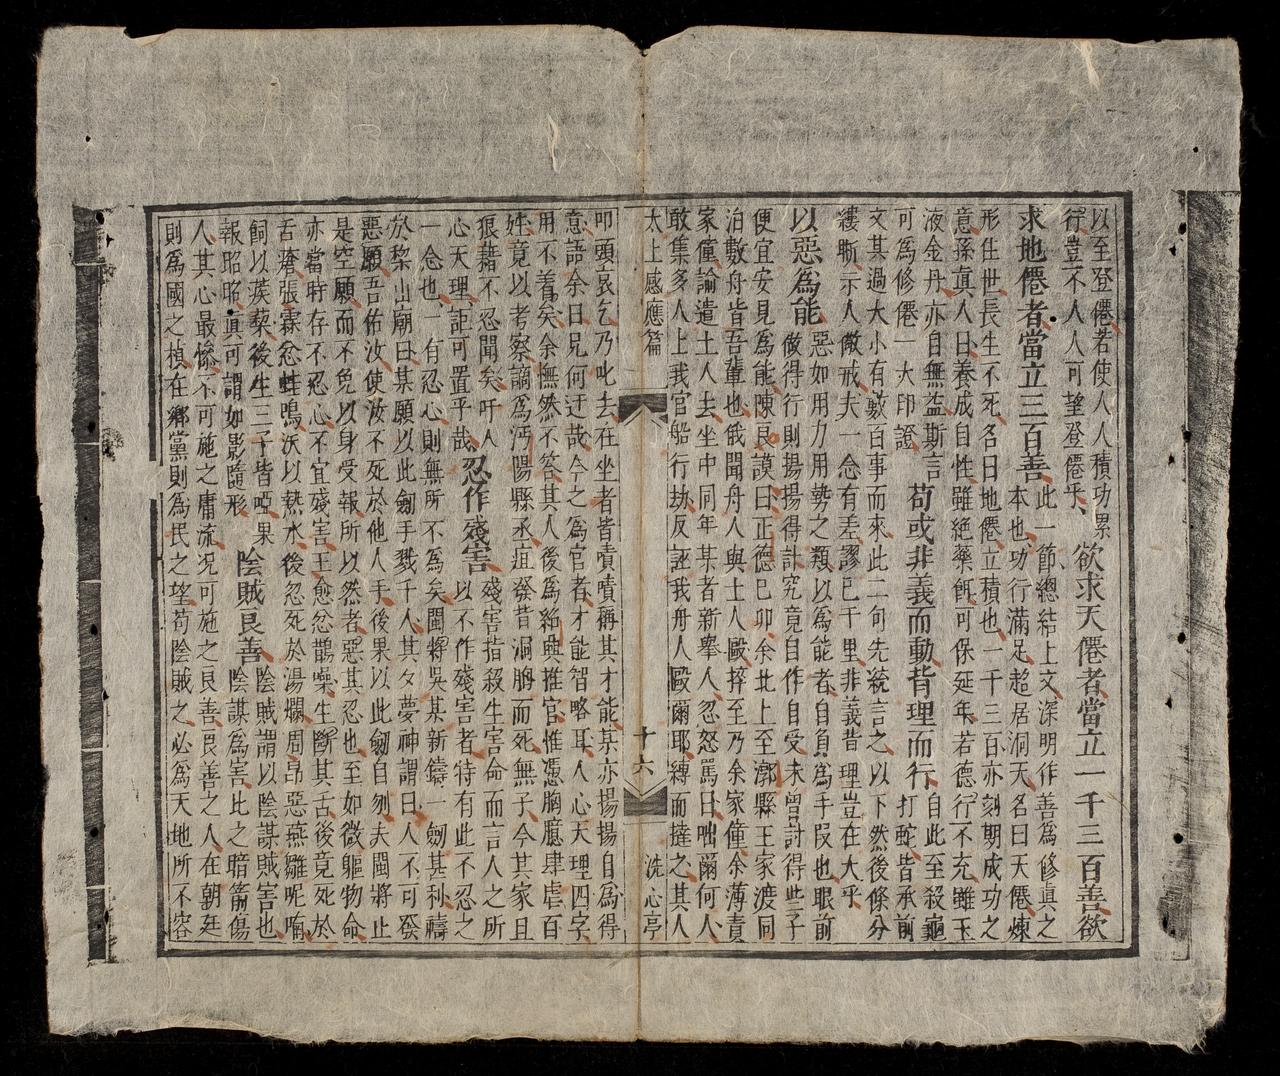 以至登僊若使人人積功累
行豈不人人人可望登僊乎
欲求天僊者當立一千三百善欲
求地僊者當立三百善
此一節總結上文深明作善為修真之
本也功行滿足超居洞天名曰天僊煉
形住世長生不死名曰地僊立積也一千三百亦刻期成功之
意孫真人曰養成自性雖絶藥餌可保延年若德行不充雖玉
液金丹亦自無益斯言
可為修僊一大印證
苟或非義而動背理而行
自此至殺龜
打蛇皆承前
文其過大小有數百事而來此二句先統言之以下然後條分
縷晰示人儆戒夫一念有差謬已千里非義背理豈在大乎
以惡為能
惡如用力用勢之類以為能者自負為手段也眼前
做得行則揚揚得計究竟自作自受未曾討得些子
便宜安見為能陳良謨曰正德己卯余北上至漷縣王家渡同
泊數舟皆吾輩也俄聞舟人與土人毆捽至乃余家僮余薄責
家僮諭遣土人去坐中同年某者新舉人忽怒罵曰咄爾何人
敢集多人上我官船行劫反誣我舟人毆爾耶縛而撻之其人
太上感應篇
十六
洗心亭
叩頭哀乞乃叱去在坐者皆嘖嘖稱其才能某亦揚揚自為得
意語余曰兄何迂哉今之為官者才能智略耳人心天理四字
用不著矣余憮然不答其人後為紹興推官惟慿胸臆肆虐百
姓竟以考察謫為沔陽縣丞疽發昔洞腑而死無子今其家且
狼藉不忍聞矣吁人
心天理詎可置乎哉
忍作殘害
殘害指殺生害命而言人之所
以不作殘害者特有此不忍之
一念也一有忍心則無所不為矣閩將吳某新鑄一劒甚利禱
於棃山廟曰某願以此劒手戮千人其夕夢神謂曰人不可發
惡願吾佑汝使汝不死於他人手後果以此劒自刎夫閩將止
是空願而不免以身受報所以然者惡其忍也至如微軀物命
亦當時存不忍心不宜殘害王愈忿鵲噪生斷其舌後竟死於
舌瘡張霖忿蛙鳴沃以熱水後忽死於湯爛周昂惡燕雛呢喃
飼以蒺藜後生三子皆啞果
報昭昭真可謂如影隨形
陰賊良善
陰賊謂以陰謀賊害也
陰謀為害比之暗箭傷
人其心最慘不可施之庸流况可施之良善良善之人在朝廷
則為國之楨在鄉黨則為民之望苟陰賊之必為天地所不容